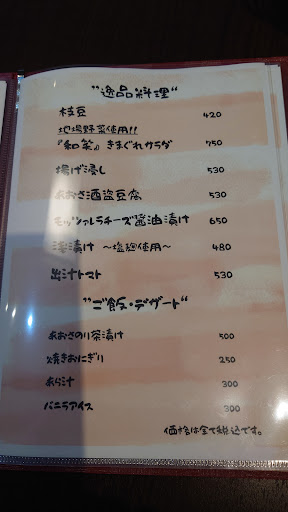 "逸品料理"
枝豆 420
地場野菜使用!!
『和菜』きまぐれサラダ 750
揚げ浸し 530
あおさ酒盗豆腐 530
モッツァレラチーズ醤油漬け 650
浅漬け ~塩麹使用~ 480
出汁トマト 530
"ご飯・デザート"
あおさのり茶漬け 500
焼きおにぎり 250
あら汁 300
バニラアイス 300
価格は全て税込です。